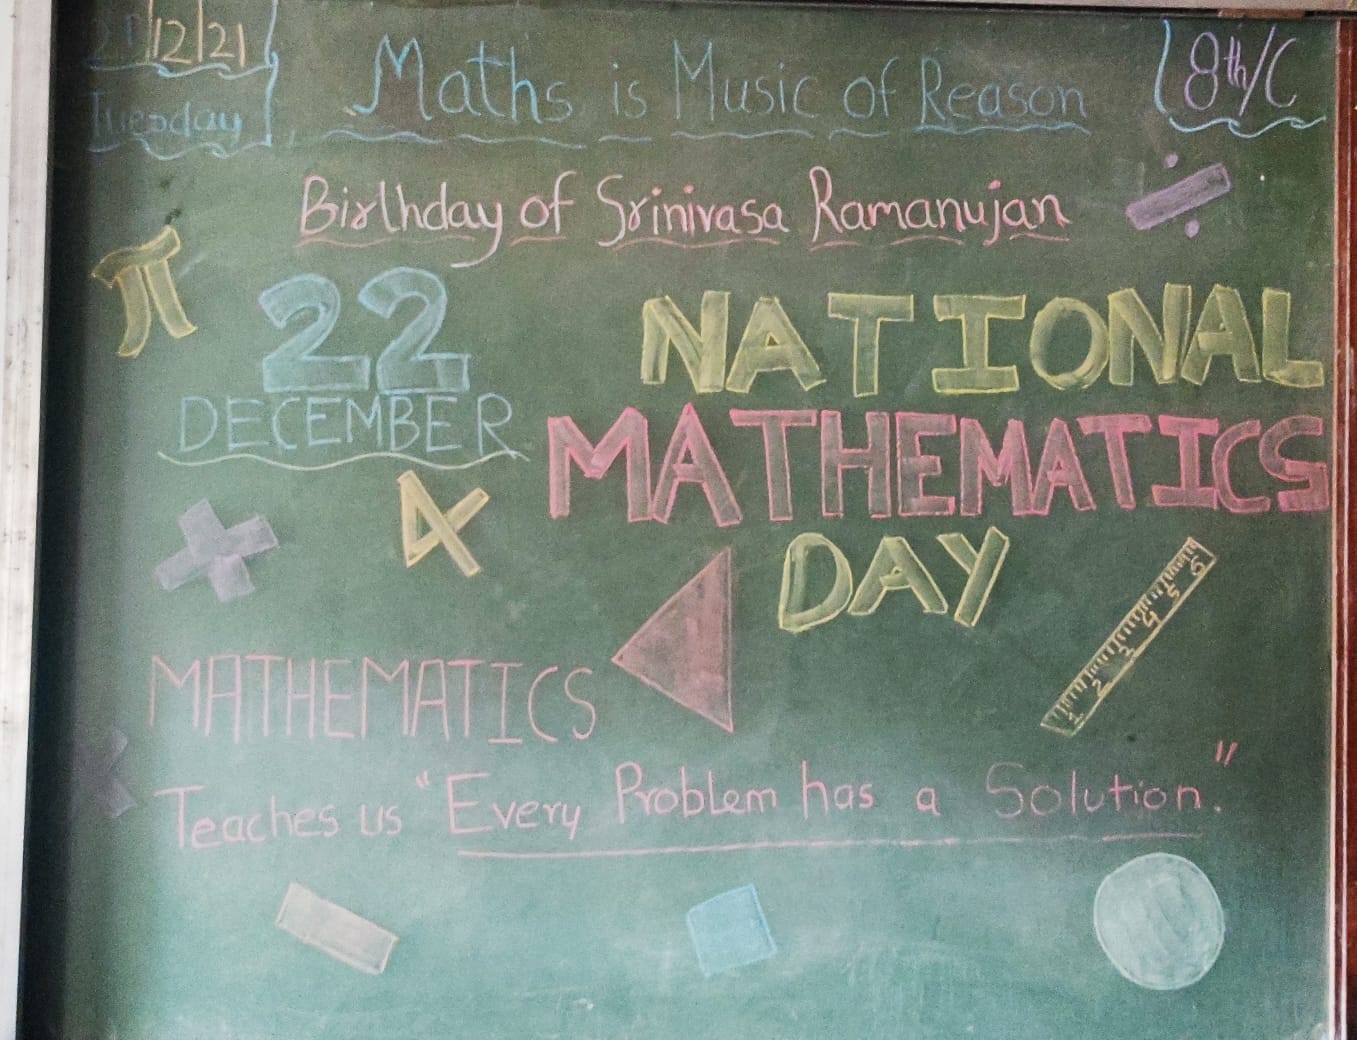 21/12/21
Tuesday
Maths is Music of Reason
8th/C
Birthday of Srinivasa Ramanujan
÷
π
22
DECEMBER
NATIONAL
MATHEMATICS
DAY
×
4
1 2 3 4 5 6
MATHEMATICS
×
Teaches us "Every Problem has a Solution."